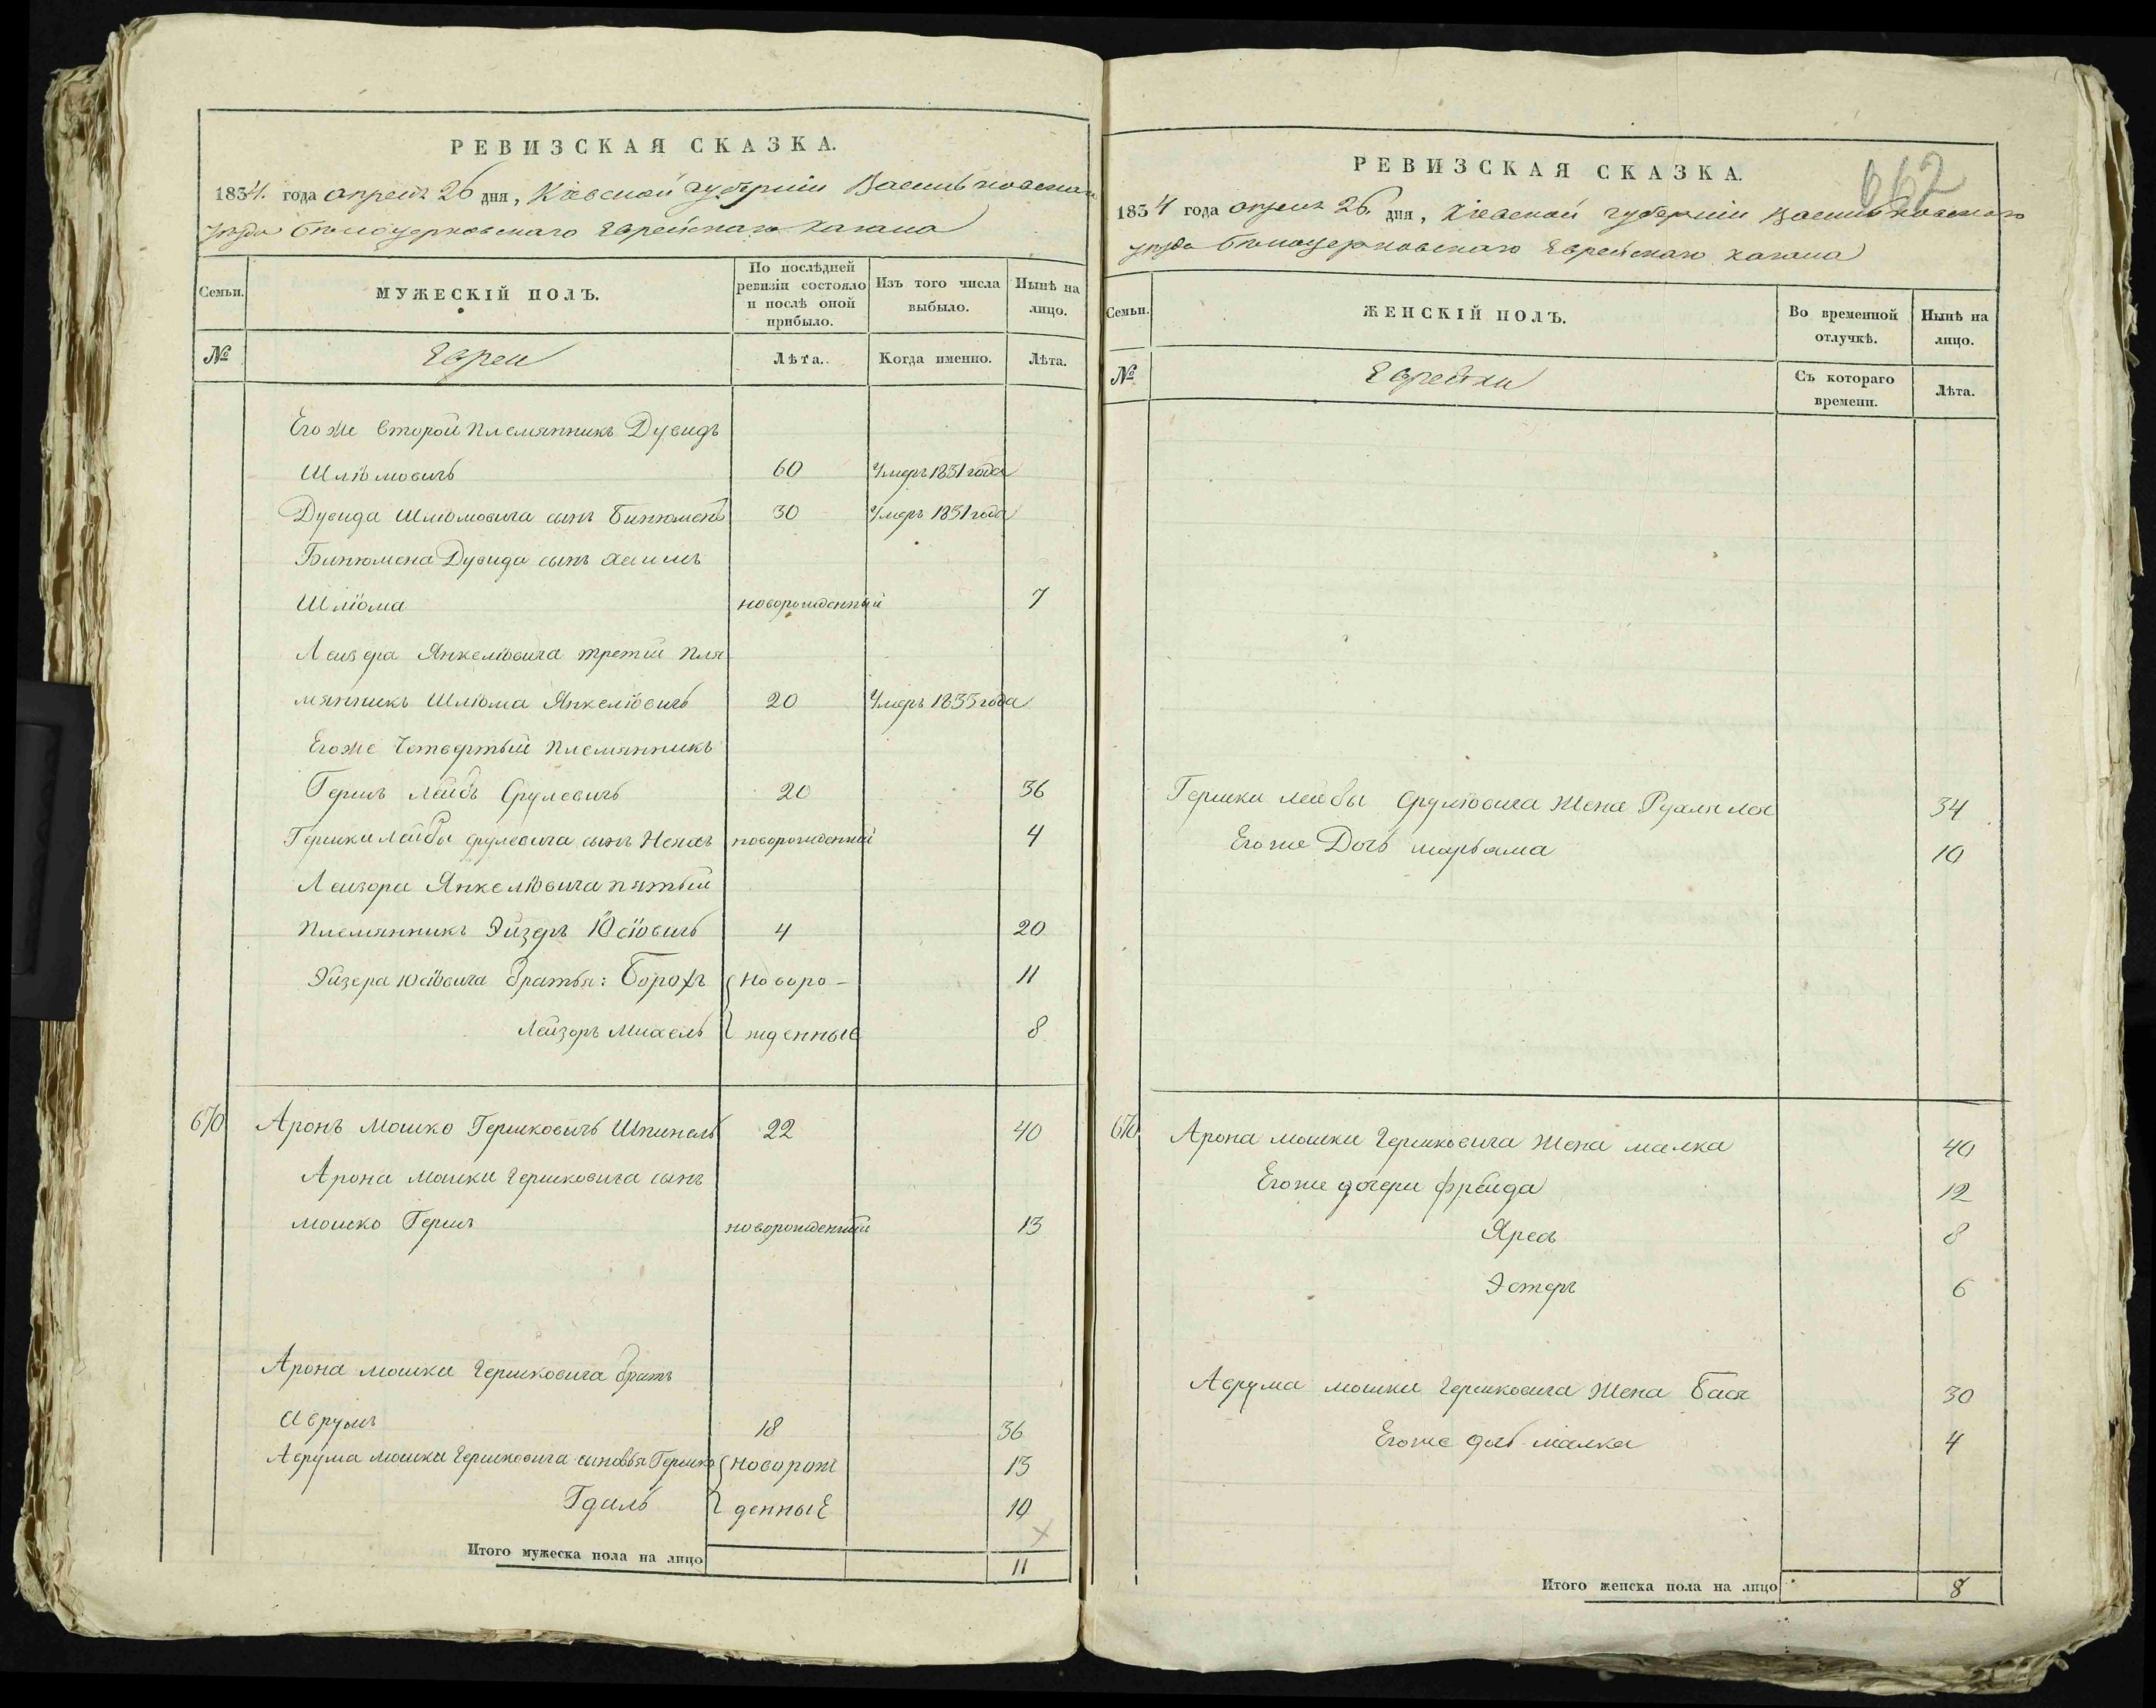 РЕВИЗСКАЯ СКАЗКА.
1834. года апреля 26 дня, Кіевской губерніи Васильковскаго
уезда белоцерковскаго Еврейскаго кагала
Семьи.
МУЖЕСКІЙ ПОЛЪ.
По послѣдней ревизіи состояло и послѣ оной прибыло.
Изъ того числа выбыло.
Нынѣ на лицо.
№
Евреи
Лѣта.
Когда именно.
Лѣта.
Его же второй племянникъ Дувидъ
Шліомовичь 60 Умеръ 1831 года
Дувида Шліомовича сынъ Бинюменъ 30 Умеръ 1831 года
Бинюмена Дувида сынъ Хаимъ
Шліома новорожденный 7
Лейзера Янкеліовича третій пле
мянникъ Шліома Янкеліовичь 20 Умеръ 1833 года
Егоже Четвертый племянникъ
Гершъ Лейбъ Срулевичь 20 36
Гершки Лейбы Срулевича сынъ новорожденный 4
Лейзора Янкеліовича пятый
племянникъ Эйзеръ Юсіовичь 4 20
Эйзера Юсіовича братья: Борохъ новоро- 11
Лейзоръ Михель жденные 8
670 Аронъ Мошко Гершковичь Шпинель 22 40
Арона мошки гершковича сынъ
мошко Гершъ новорожденный 13
Арона мошки гершковича братъ
Аврумъ 18 36
Аврума мошки гершковича сыновья Гершко новорож 13
Гдаль денные 10
Итого мужеска пола на лицо 11
662
РЕВИЗСКАЯ СКАЗКА.
1834 года апреля 26. дня, Кіевской губерніи Васильковскаго
уезда белоцерковскаго Еврейскаго кагала
Семьи.
ЖЕНСКІЙ ПОЛЪ.
Во временной отлучкѣ.
Нынѣ на лицо.
№
Еврейки
Съ котораго времени.
Лѣта.
Гершки лейбы Сруліовича жена Рухля Лея 34
Егоже Дочь марьяма 10
670 Арона мошки гершковича жена малка 40
Егоже дочери фрейда 12
8
Эстеръ 6
Аврума мошки гершковича жена Бася 30
Егоже дочь малка 4
Итого женска пола на лицо 8